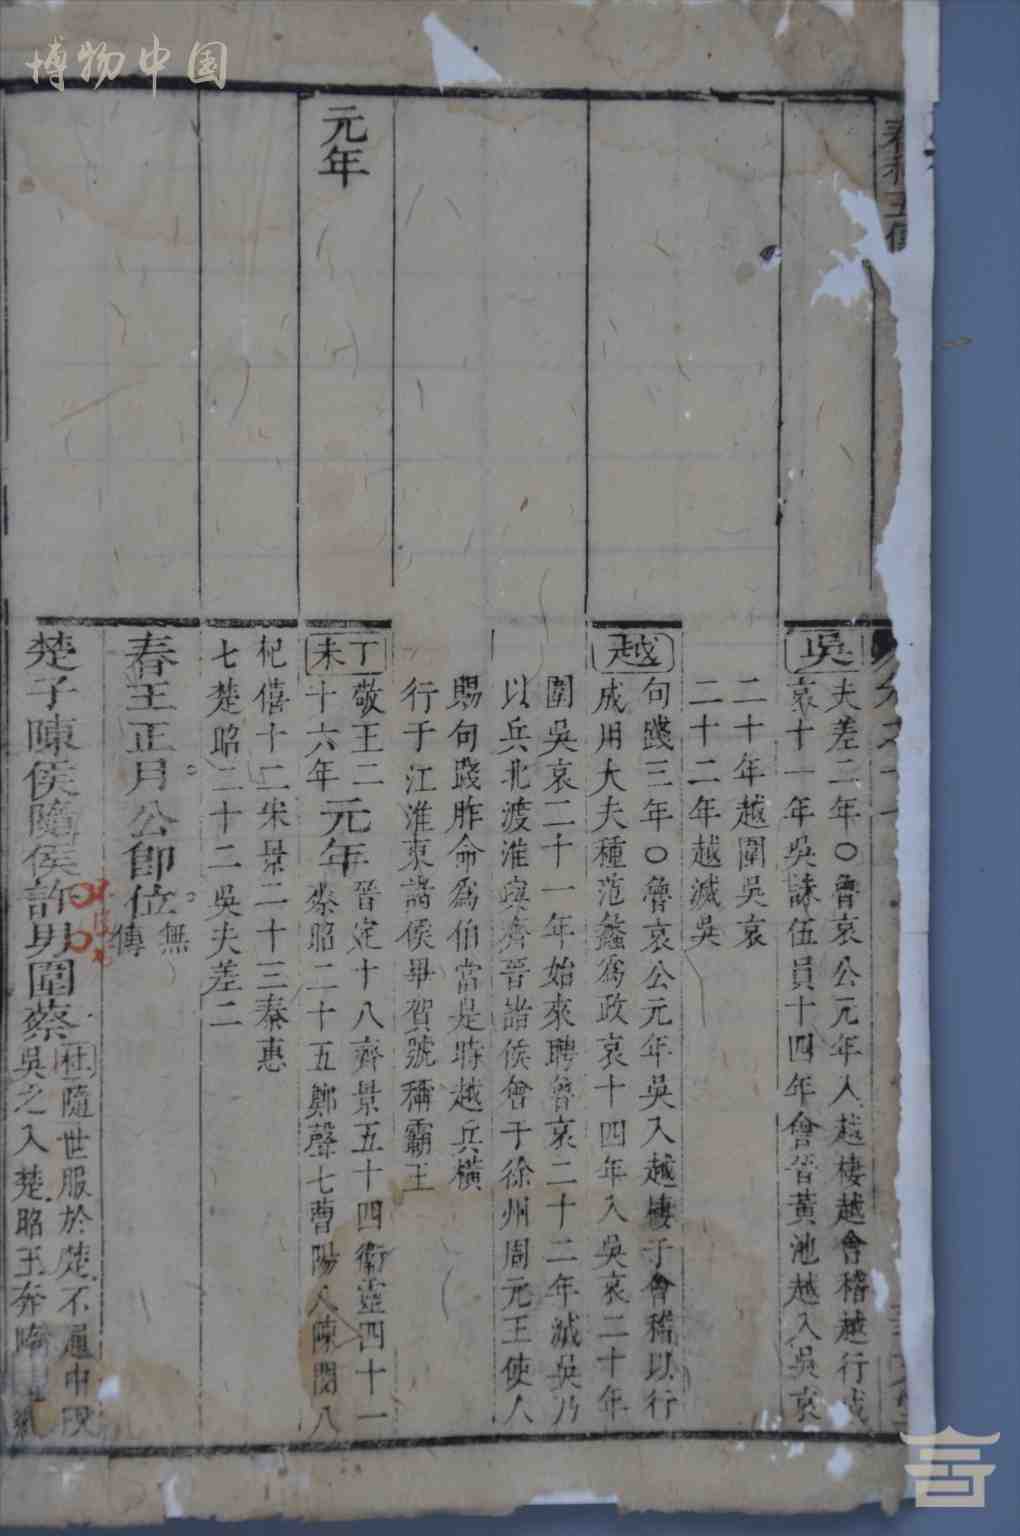 博物中国
吳
夫差二年○魯哀公元年入越棲越會稽越行成
哀十一年吳誅伍員十四年會晉黃池越入吳哀
二十年越圍吳哀
二十二年越滅吳
越
句踐三年○魯哀公元年吳入越棲于會稽以行
成用大夫種范蠡為政哀十四年入吳哀二十年
圍吳哀二十一年始來聘魯哀二十二年滅吳乃
以兵北渡淮與齊晉諸侯會于徐州周元王使人
賜句踐胙命為伯當是時越兵橫
行于江淮東諸侯畢賀號稱霸王
元年
丁未
敬王二
十六年
元年
晉定十八齊景五十四衛靈四十一
蔡昭二十五鄭聲七曹陽八陳閔八
杞僖十二宋景二十三秦惠
七楚昭二十二吳夫差二
春王正月公即位
無
傳
楚子陳侯隨侯許男圍蔡
杜隨世服於楚不通中
吳之入楚昭王奔